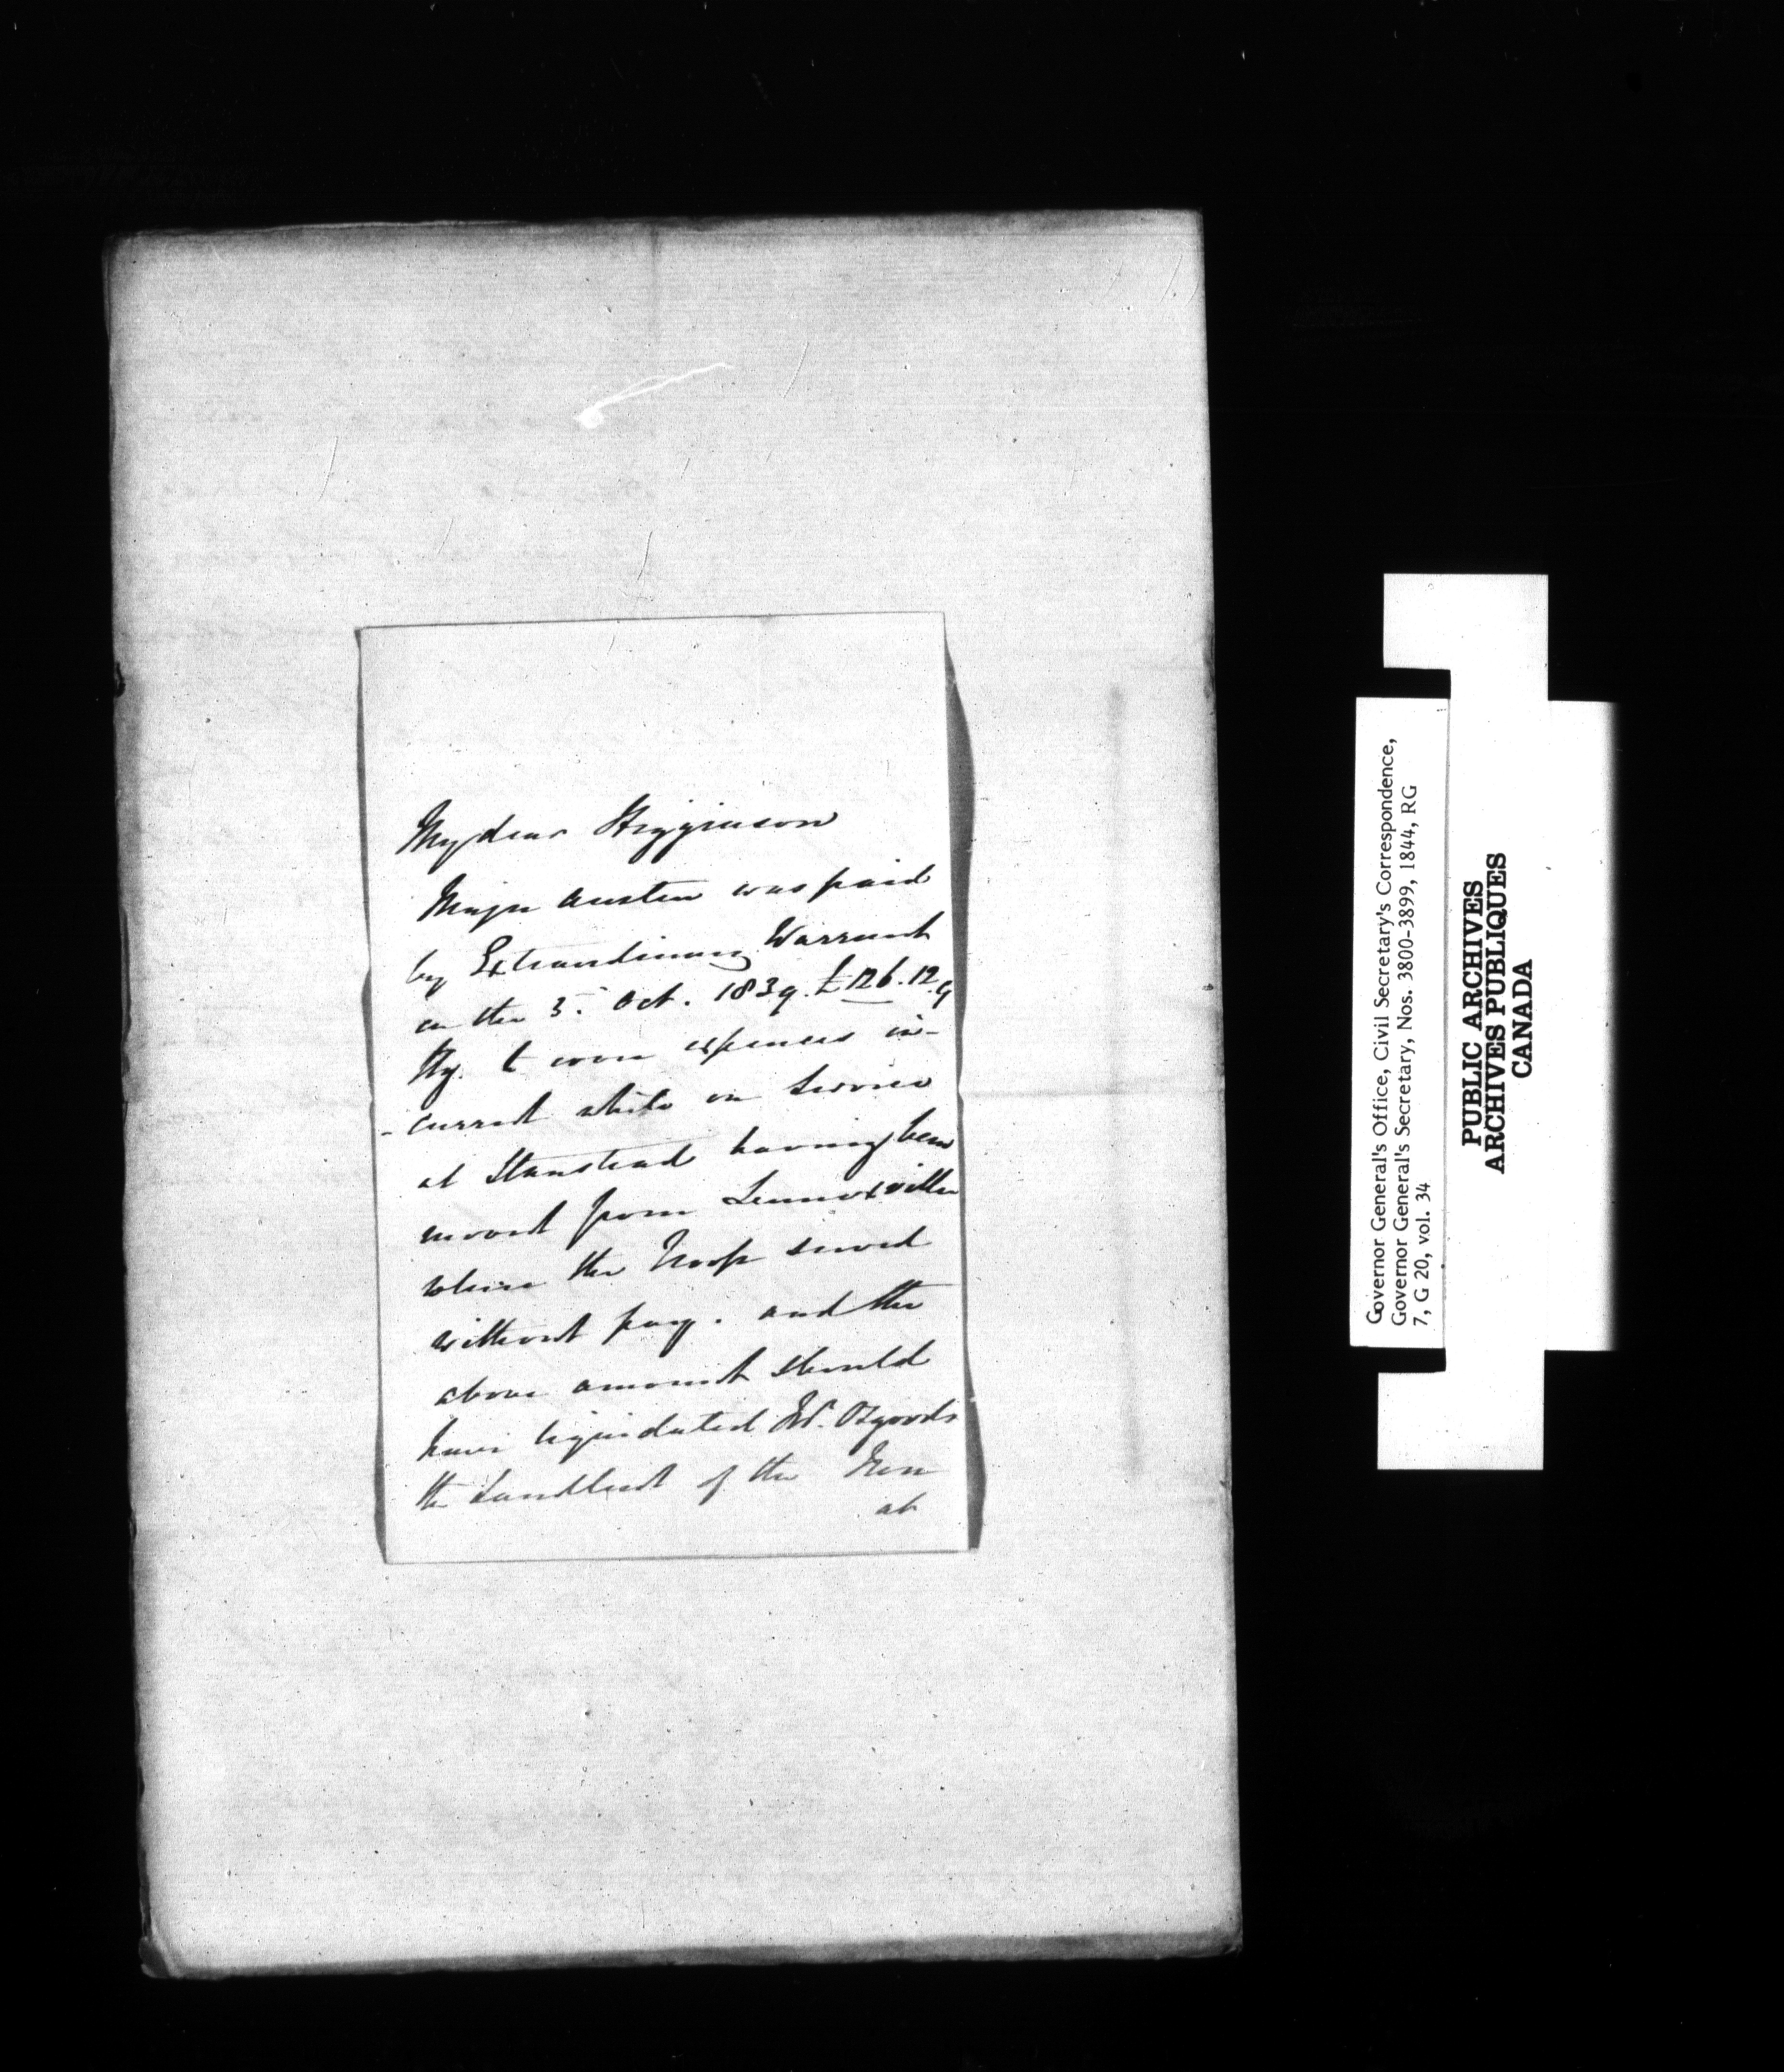 My dear Higginson
Major Austin was paid
by Extraordinary Warrant
on the 5th Oct. 1839. £126.12.9
Hy. to cover expenses in-
-curred while on Service
at Stanstead having been
moved from Lennoxville
where the Troop served
without pay. and the
above amount should
have liquidated Mr. Osgoods
the Landlord of the Inn
at
Governor General's Office, Civil Secretary's Correspondence,
Governor General's Secretary, Nos. 3800-3899, 1844, RG
7, G 20, vol. 34
PUBLIC ARCHIVES
ARCHIVES PUBLIQUES
CANADA